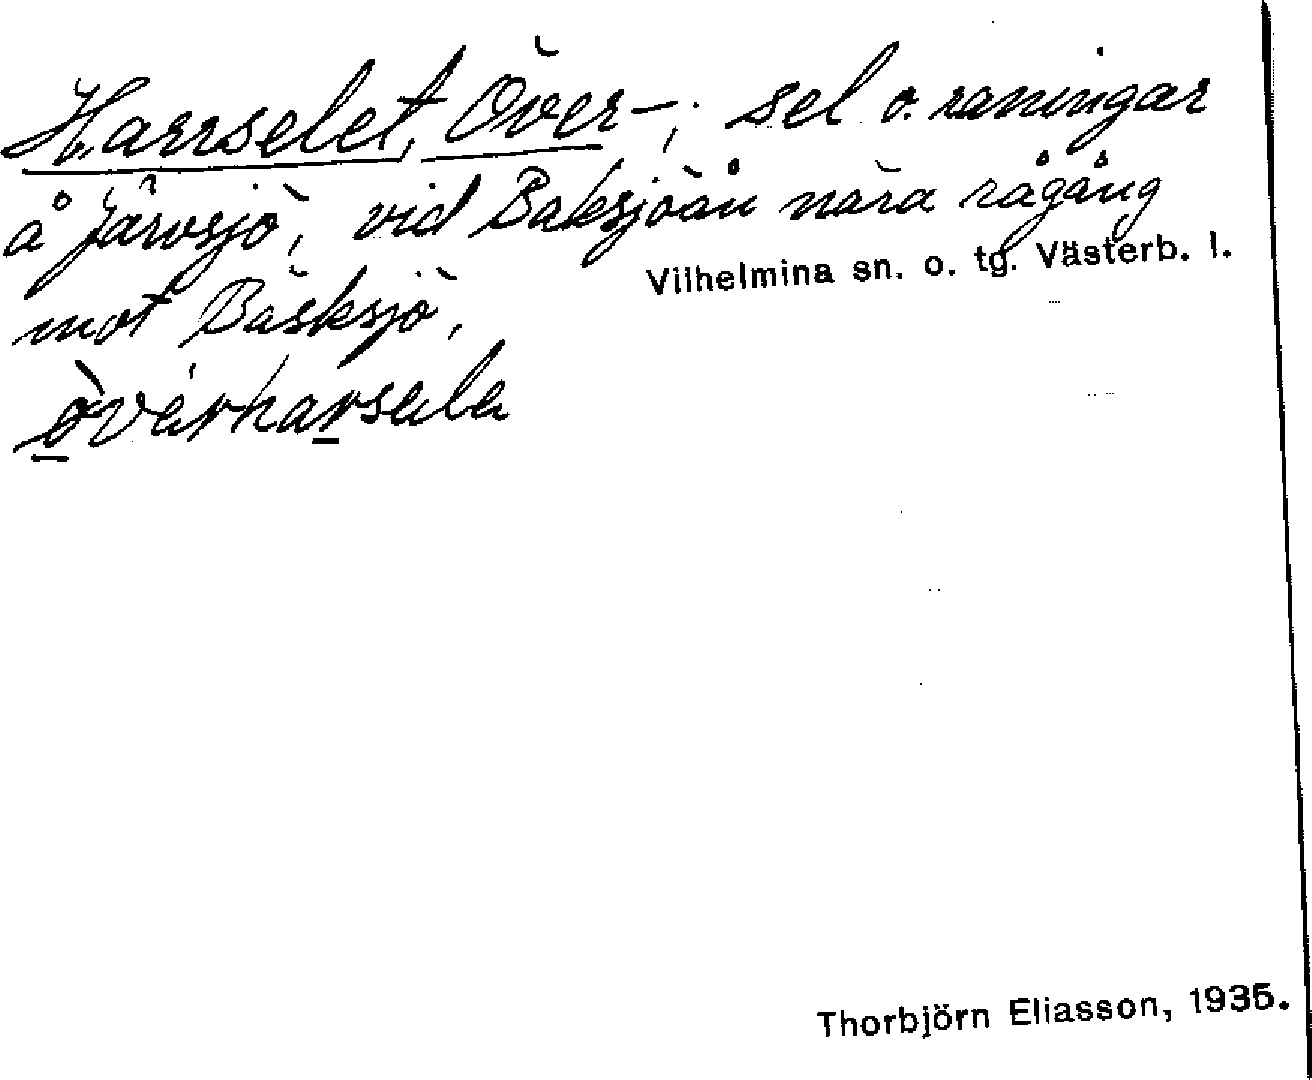 Harrselet, Över-; sel o. raningar
å Järvsjö, vid Baksjöån nära rågång
mot Bäsksjö,
Vilhelmina sn. o. tg. Västerb. l.
Thorbjörn Eliasson, 1935.